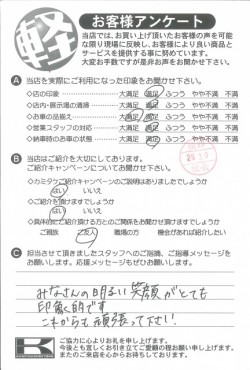 軽
お客様アンケート
当店では、お買い上げ頂いたお客様の声を可能
な限り現場に反映し、お客様により良い商品と
サービスを提供する事に努めています。
大変お手数ですが是非お声をお聞かせ下さい。
A 当店を実際にご利用になった印象をお聞かせ下さい。
◇店の印象 大満足 満足 ふつう やや不満 不満
◇店内・展示場の清掃 大満足 満足 ふつう やや不満 不満
◇お車の品揃え 大満足 満足 ふつう やや不満 不満
◇営業スタッフの対応 大満足 満足 ふつう やや不満 不満
◇納車時のお車の状態 大満足 満足 ふつう やや不満 不満
B 当店はご紹介を大切にしております。
ご紹介キャンペーンについてお聞かせ下さい。
◇カミタケご紹介キャンペーンのご説明はありましたでしょうか
はい いいえ
◇ご紹介を頂けますでしょうか
はい いいえ
◇具体的にご紹介頂ける方とのご関係をお聞かせ頂けますでしょうか
ご親族 ご友人 職場の方 機会があれば紹介したい
C 担当させて頂きましたスタッフへのご指摘、ご指導メッセージを
お願いします。応援メッセージもぜひお願いします。
みなさんの明るい笑顔がとても
印象的です
これからも頑張って下さい!
K
ご協力に心よりお礼を申し上げます。
今後とも宜しくお引き立てご愛顧の程お願い申し上げます。
またのご来店を心からお待ちしております。